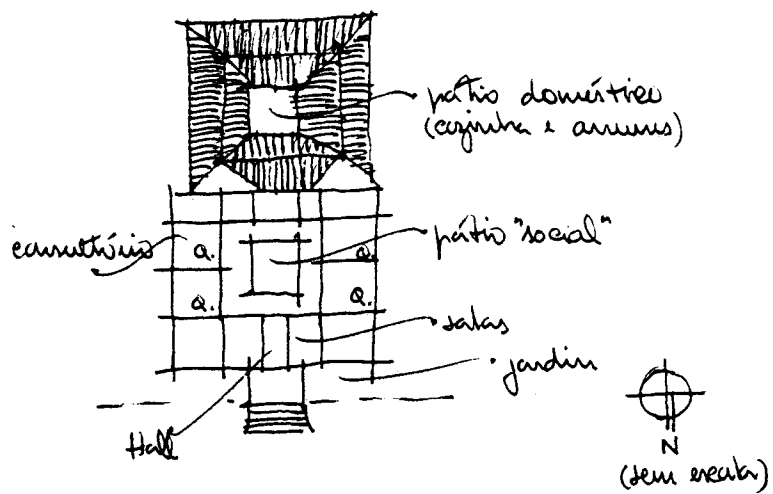 pátio doméstico
(cozinha e anexos)
consultório
Q.
Q.
pátio "social"
Q.
Q.
salas
jardin
Hall
N
(sem escala)